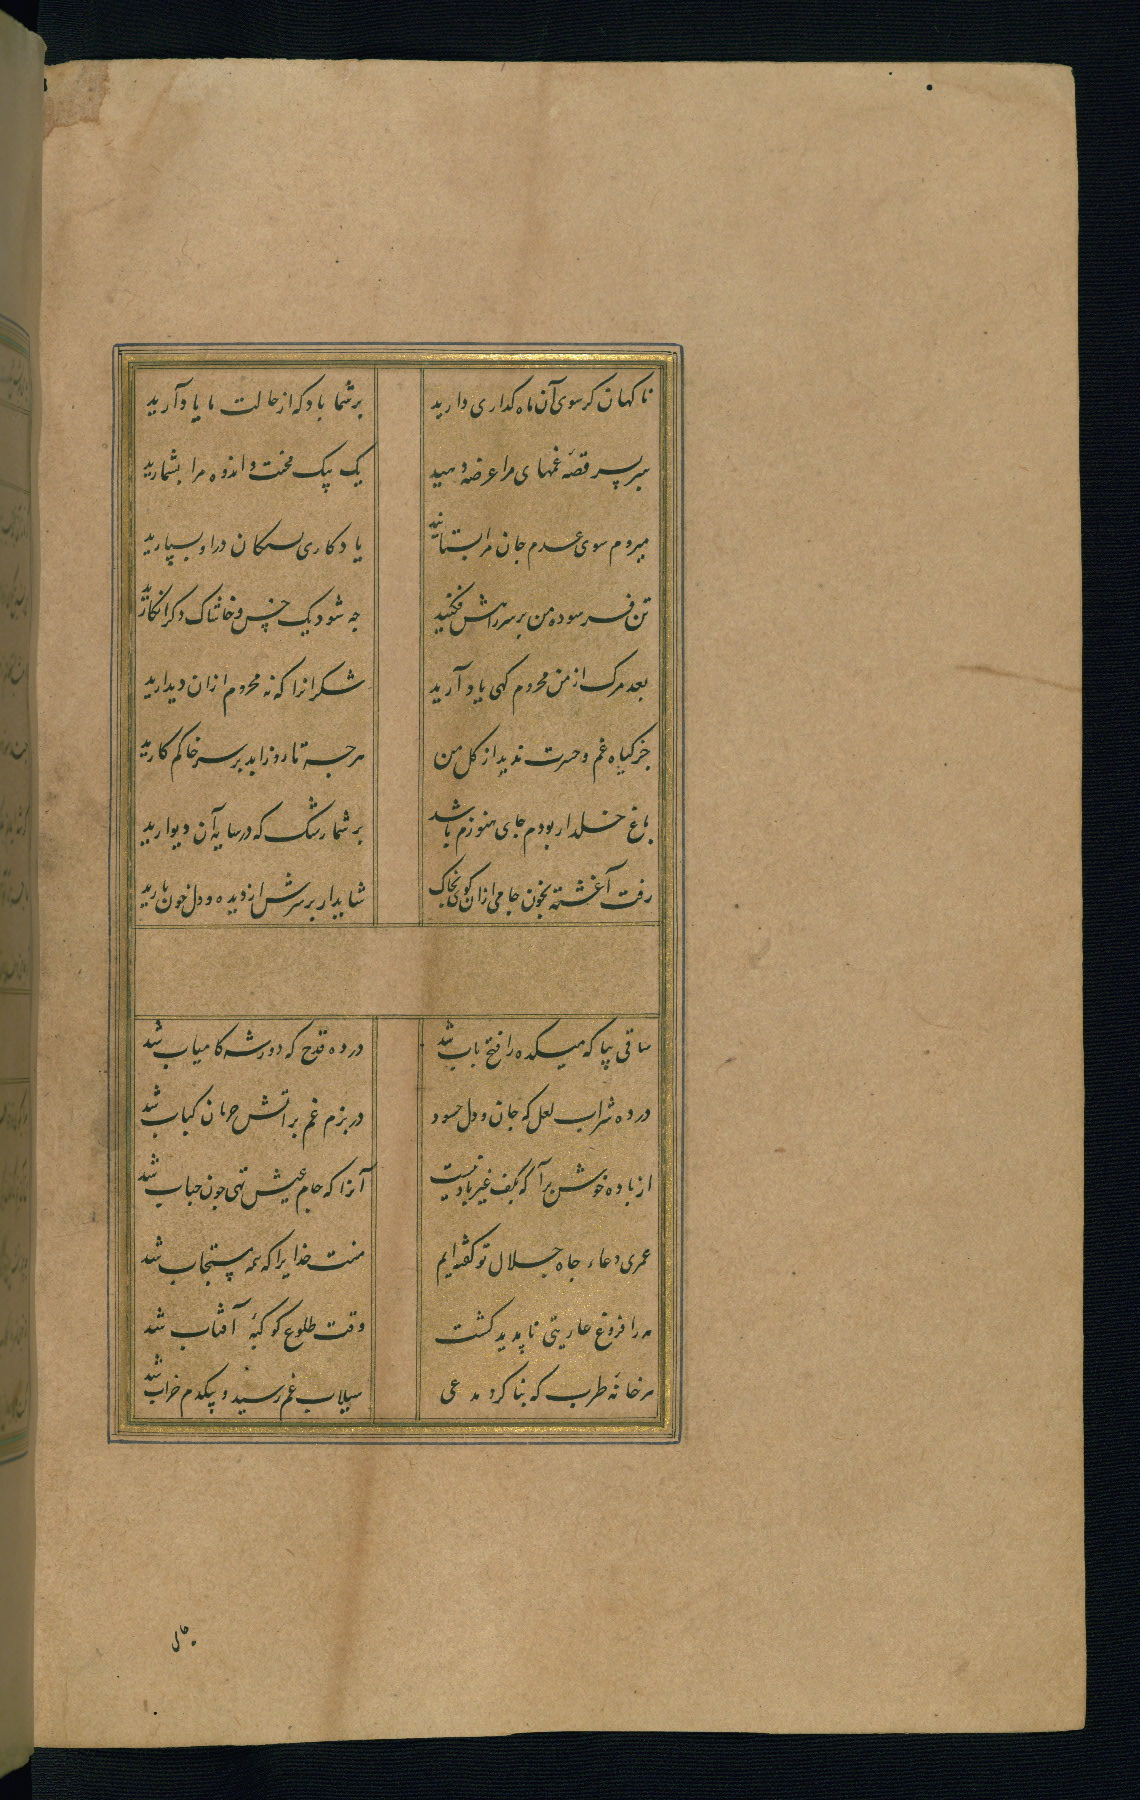 ناکهان کر سوی آن ماه کذاری دارید بر شما باد که از حالت ما یاد آرید
سر بسر قصهٔ غمهای مرا عرضه دهید یک بیک محنت و اندوه مرا بشمارید
میروم سوی عدم جان مرا بستانید یادکاری بسکان در او بسپارید
تن فرسوده من بر سر راهش فکنید جه شود یک خس و خاشاک دکر انکارید
بعد مرک از من محروم کهی یاد آرید شکر انرا که نه محروم ازان دیدارید
جز کیاه غم و حسرت ندمد از کل من هرجه تا روز ابد بر سر خاکم کارید
باغ خلد ار بودم جای هنوزم باشد بر شما رشک که در سایه آن دیوارید
رفت آغشته بخون جامی ازان کوی بخاک شاید ار بر سرش از دیده و دل خون بارید
ساقی بیا که میکده را فتح باب شد در ده قدح که دور شه کامیاب شد
در ده شراب لعل که جان و دل حسود در بزم غم بر اتش حرمان کباب شد
از باده خوش برآ که بکف غیر باد نیست آنرا که جام عیش تهی جون حباب شد
عمری دعاء جاه جلال تو کفته ایم منت خدایرا که همه مستجاب شد
مه را فروغ عاریتی ناپدید کشت وقت طلوع کوکبهٔ آفتاب شد
هر خانهٔ طرب که بنا کرد مدعی سیلاب غم رسید و بیکدم خراب شد